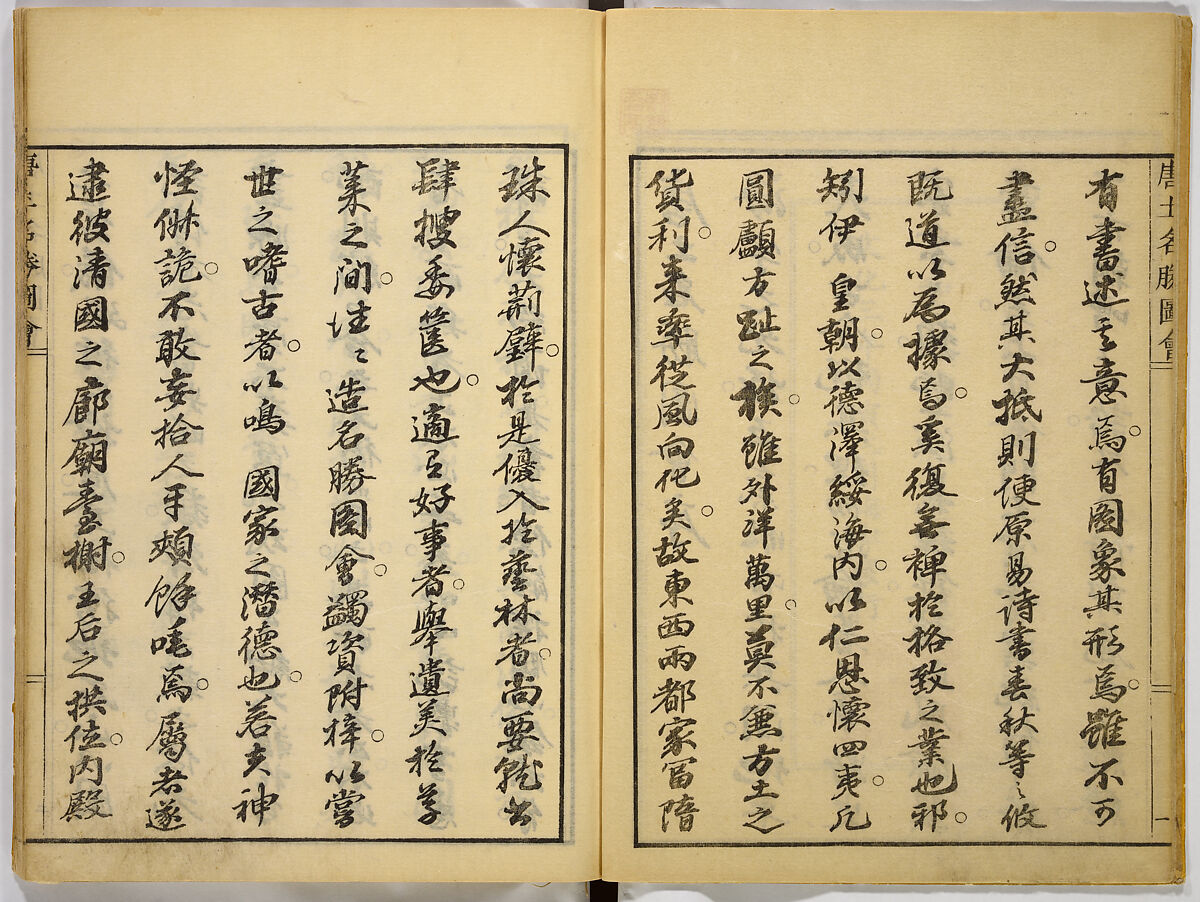 唐土名勝圖會
一
有書述其意焉。有圖象其形焉。雖不可
盡信。然其大抵則便原易詩書春秋等之攸
既道以為據焉。奚復無裨於格致之業也邪。
矧伊 皇朝。以德澤綏海內。以仁恩懷四夷。凡
圓顱方趾之族。雖外洋萬里。莫不無方土之
貨利。来率從風向化矣。故東西兩都家畜隋
珠人懷荊璧。於是優入於藝林者。尚要就書
肆搜委篋也。適有好事者。舉遺美於草
菜之間。往々造名勝圖會。蠲資附梓。以當
世之嗜古者。以鳴 國家之潛德也。若夫神
怪俶詭。不敢妄拾人牙頰餘唾焉。屬者遂
逮彼清國之廊廟臺榭。王后之拱位。內殿
唐土名勝圖會